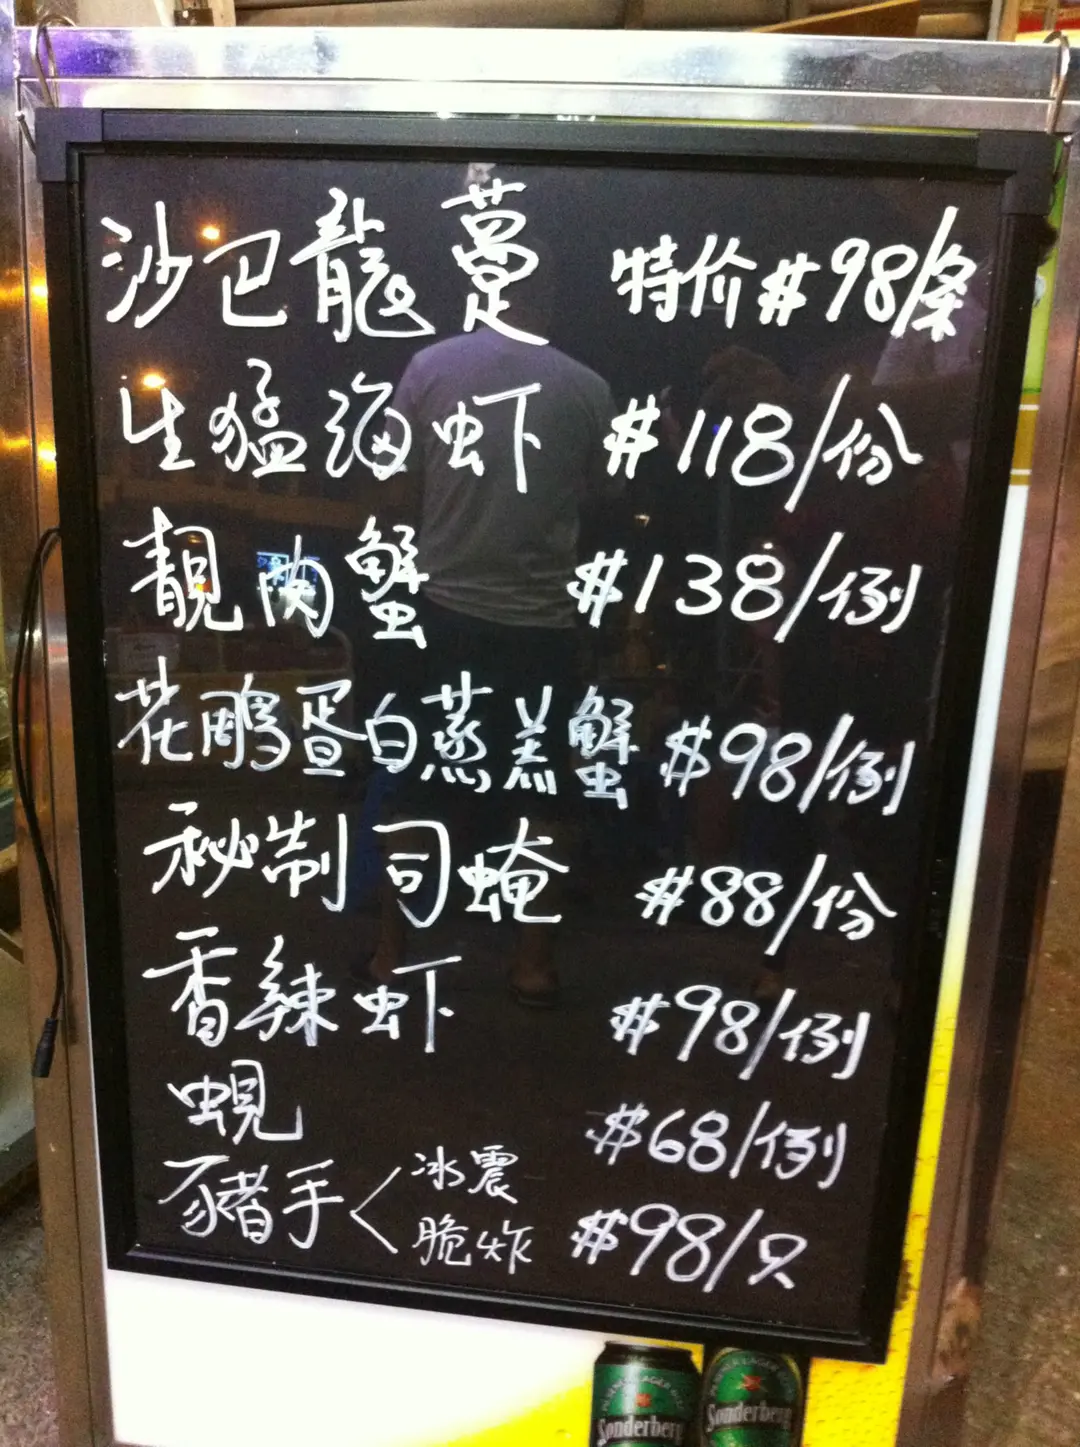 沙巴龍躉 特价#98/条
生猛海虾 #118/份
靚肉蟹 #138/例
花鵰蛋白蒸羔蟹 #98/例
秘制司蜯 #88/份
香辣虾 #98/例
蜆 #68/例
豬手 冰震 脆炸 #98/只
PILSENER LAGER BEER
Sonderberg
PILSENER LAGER BEER
Sonderberg